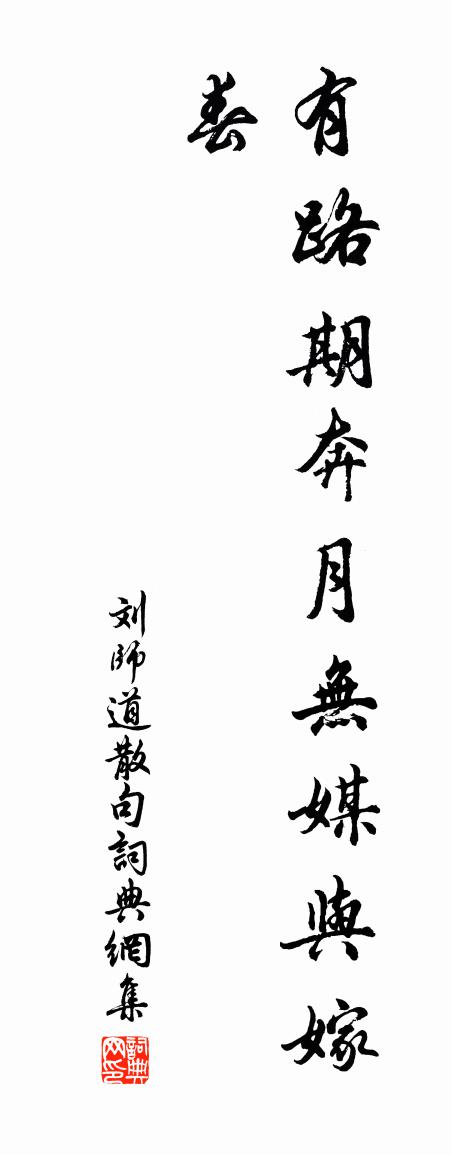 有路期奔月無媒與嫁
春
刘師道散句詞典網集
詞典网印